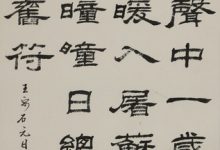 聲中一歲
暖入屠蘇
曈曈日總
舊符
王安石元日